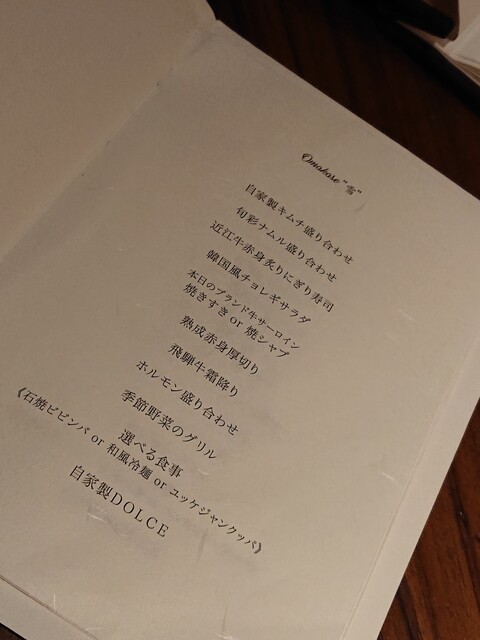 Omakase "雪"
自家製キムチ盛り合わせ
旬彩ナムル盛り合わせ
近江牛赤身炙りにぎり寿司
韓国風チョレギサラダ
本日のブランド牛サーロイン
焼きすき or 焼シャブ
熟成赤身厚切り
飛騨牛霜降り
ホルモン盛り合わせ
季節野菜のグリル
選べる食事
《石焼ビビンバ or 和風冷麺 or ユッケジャンクッパ》
自家製DOLCE